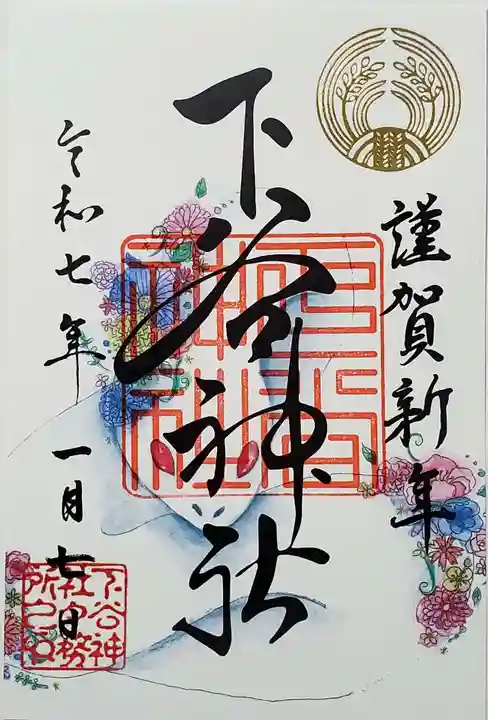 謹賀新年
下谷神社
令和七年 一月七日
下谷神
社社務
所之印